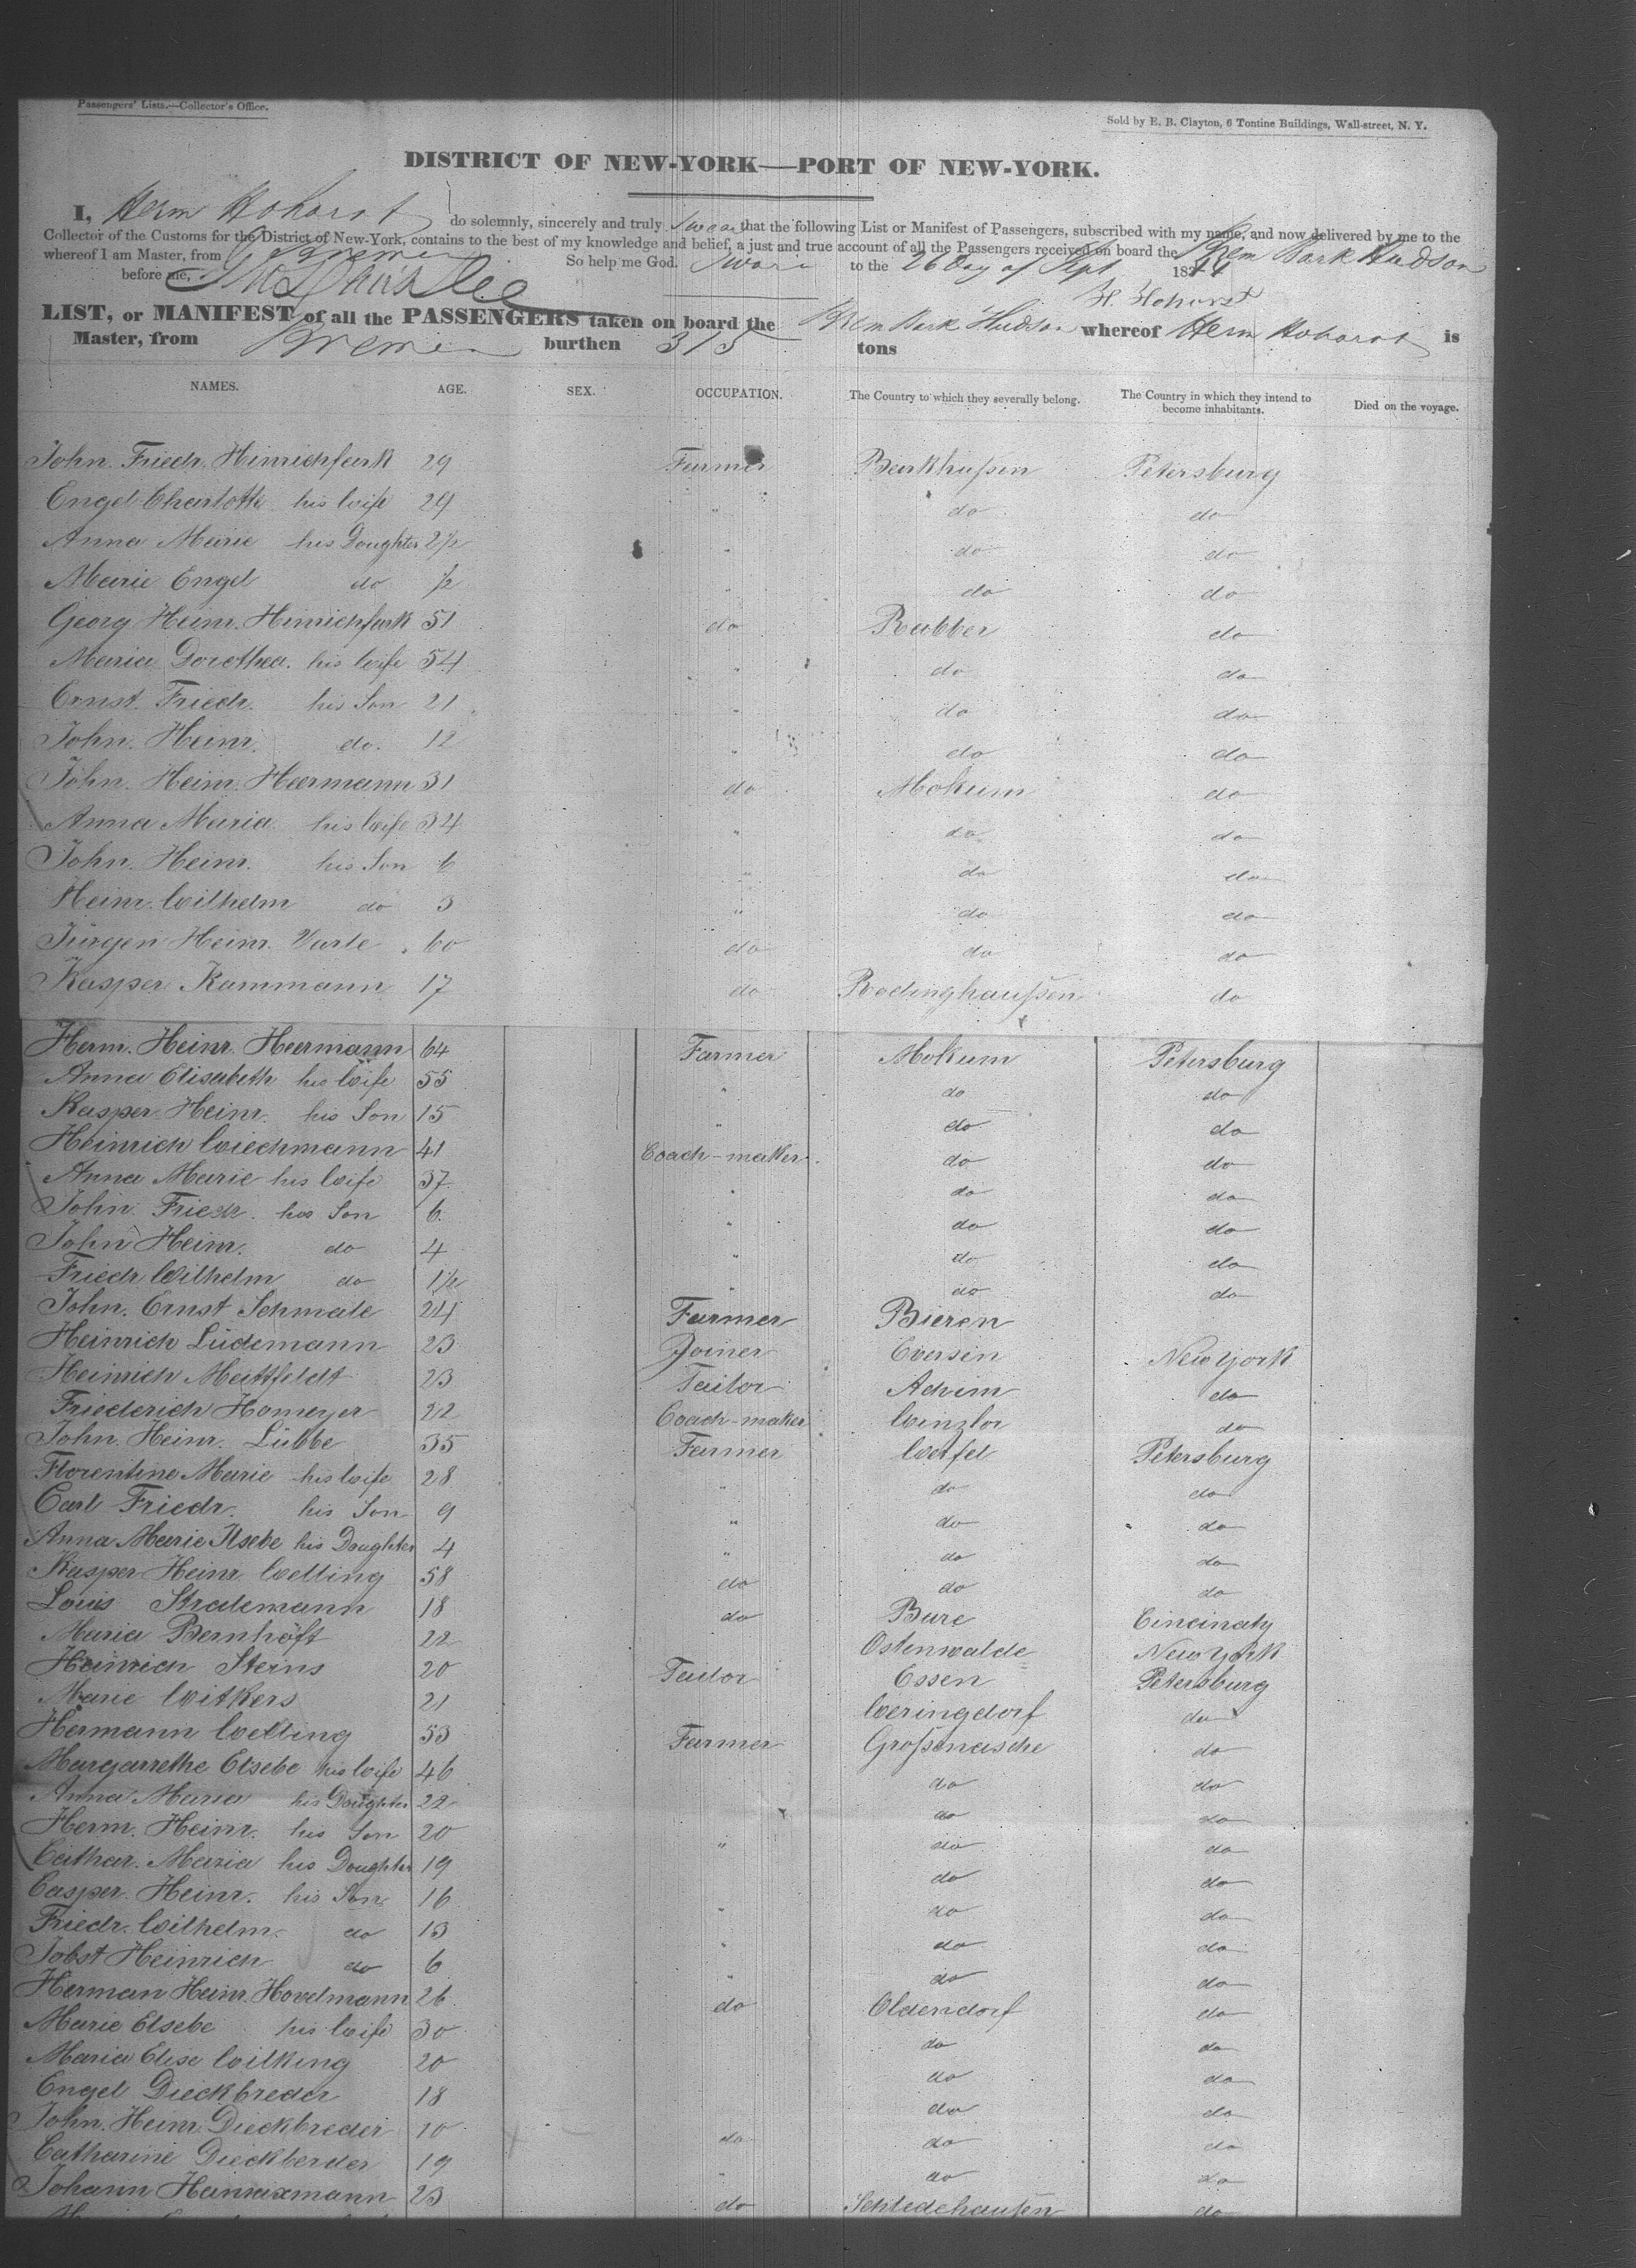 Passengers' Lists.—Collector's Office.
Sold by E. B. Clayton, 6 Tontine Buildings, Wall-street, N. Y.
DISTRICT OF NEW-YORK—PORT OF NEW-YORK.
I, Herm Hohorst do solemnly, sincerely and truly swear that the following List or Manifest of Passengers, subscribed with my name, and now delivered by me to the
Collector of the Customs for the District of New-York, contains to the best of my knowledge and belief, a just and true account of all the Passengers received on board the Brem Bark Hudson
whereof I am Master, from Bremen So help me God. Sworn to the 26 Day of Sept 184
before me,
H. Hohorst
LIST, or MANIFEST of all the PASSENGERS taken on board the Brem Bark Hudson whereof Herm Hohorst is
Master, from Bremen burthen 315 tons
NAMES. AGE. SEX. OCCUPATION. The Country to which they severally belong. The Country in which they intend to become inhabitants. Died on the voyage.
John. Friedr. Hinrichfark 29 Farmer Barkhußen Petersburg
Engel Charlotte his wife 29 " do do
Anna Marie his Doughter 2½ " do do
Marie Engel do ½ " do do
Georg Heinr. Hinrichfark 51 do Rabber do
Maria Dorothea. his wife 54 " do do
Ernst. Friedr. his Son 21 " do do
John. Heinr. do. 12 " do do
John. Heinr. Heermann 31 do Mokum do
Anna Maria his wife 34 " do do
John. Heinr. his Son 6 " do do
Heinr. Wilhelm do 3 " do do
Jürgen Heinr. Varle 60 do do do
Kasper Kammann 17 do Rodinghaußen do
Herm. Heinr. Heermann 64 Farmer Mokum Petersburg
Anna Elisabeth his wife 55 " do do
Kasper Heinr. his Son 15 " do do
Heinrich Wiechmann 41 Coach-maker do do
Anna Marie his wife 37 " do do
John Friedr. his Son 6 " do do
John Heinr. do 4 " do do
Friedr Wilhelm do 1½ " do do
John. Ernst Schmale 24 Farmer Bieren
Heinrich Lüdemann 23 Joiner Eversen New York
Heinrich Mattfeldt 23 Tailor Achim do
Friederich Homeyer 22 Coach-maker Winzlor do
John. Heinr. Lübbe 35 Farmer Welfel Petersburg
Florentine Marie his wife 28 " do do
Carl Friedr. his Son 9 " do do
Anna Marie Ilsebe his Doughter 4 " do do
Kasper Heinr. Welling 58 do do do
Louis Stratemann 18 do Bure Cincinaty
Maria Bernhöft 22 Ostenwalde New York
Heinrich Sterns 20 Tailor Essen Petersburg
Marie Witkers 21 Weringdorf do
Hermann Welling 53 Farmer Großenasche do
Margarrethe Elsebe his wife 46 do do
Anna Maria his Doughter 22 do do
Herm. Heinr. his Son 20 " do do
Cathar. Maria his Doughter 19 do do
Casper Heinr. his Son 16 " do do
Friedr. Wilhelm. do 13 " do do
Jobst Heinrich do 6 " do do
Herman Heinr. Hovelmann 26 do Oldendorf do
Marie Elsebe his wife 30 do do
Maria Elise Wilking 20 do do
Engel Dieckbreder 18 do do
John. Heinr. Dieckbreder 10 do do do
Catharine Dieckberder 19 " do do
Johann 23 do Schledehaußen do